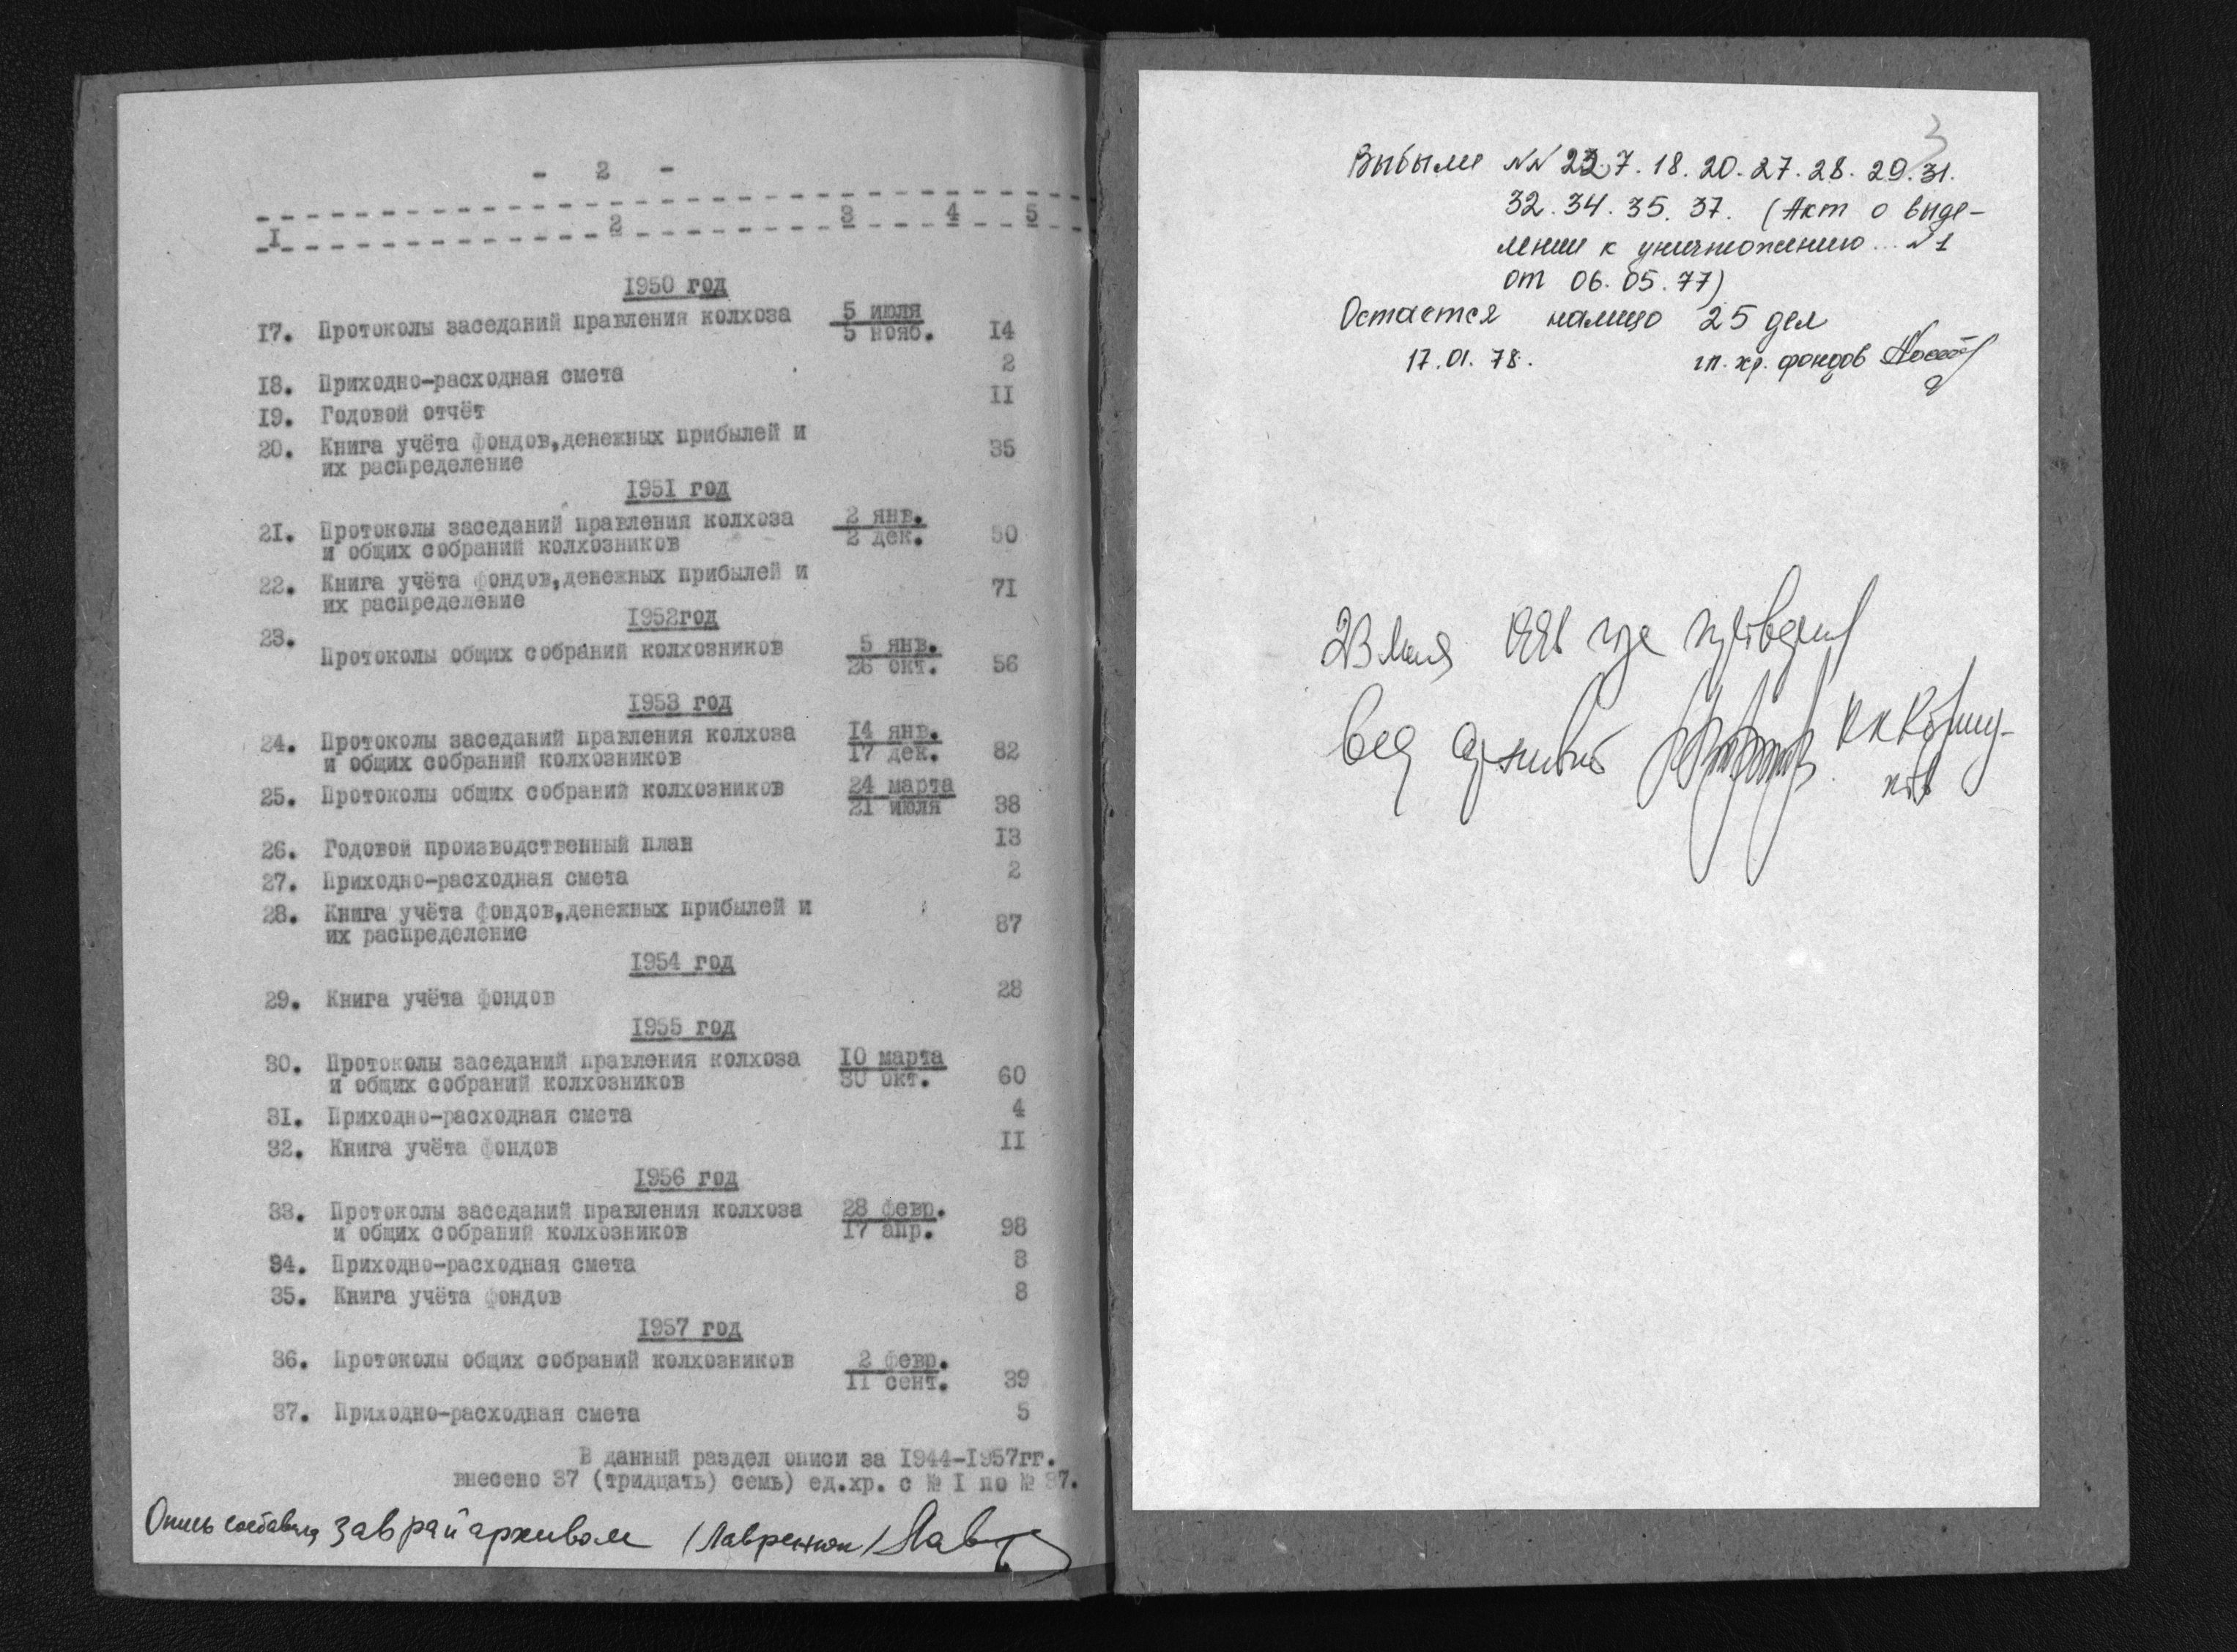 - 2 -
I 2 3 4 5
1950 год
17. Протоколы заседаний правления колхоза 5 июля
5 нояб. 14
18. Приходно-расходная смета 2
19. Годовой отчёт II
20. Книга учёта фондов,денежных прибылей и
их распределение 35
1951 год
21. Протоколы заседаний правления колхоза 2 янв.
и общих собраний колхозников 2 дек. 50
22. Книга учёта фондов,денежных прибылей и
их распределение 71
1952год
23. Протоколы общих собраний колхозников 5 янв.
26 окт. 56
1953 год
24. Протоколы заседаний правления колхоза 14 янв.
и общих собраний колхозников 17 дек. 82
25. Протоколы общих собраний колхозников 24 марта
21 июля 38
26. Годовой производственный план 13
27. Приходно-расходная смета 2
28. Книга учёта фондов,денежных прибылей и
их распределение 87
1954 год
29. Книга учёта фондов 28
1955 год
30. Протоколы заседаний правления колхоза 10 марта
и общих собраний колхозников 30 окт. 60
31. Приходно-расходная смета 4
32. Книга учёта фондов II
1956 год
33. Протоколы заседаний правления колхоза 28 февр.
и общих собраний колхозников 17 апр. 98
34. Приходно-расходная смета 8
35. Книга учёта фондов 8
1957 год
36. Протоколы общих собраний колхозников 2 февр.
11 сент. 39
37. Приходно-расходная смета 5
В данный раздел описи за 1944-1957гг.
внесено 37 (тридцать) семь) ед.хр. с № I по № 37.
Опись составила заврайархивом (Лавренюк)
3
Выбыли NN 2 3 7. 18. 20. 27. 28. 29. 31.
32. 34. 35. 37. (Акт о выде-
лении к уничтожению... N 1
от 06.05.77)
Остается налицо 25 дел
17.01.78. гл. хр. фондов
23 мая 1991 год
вед архивис